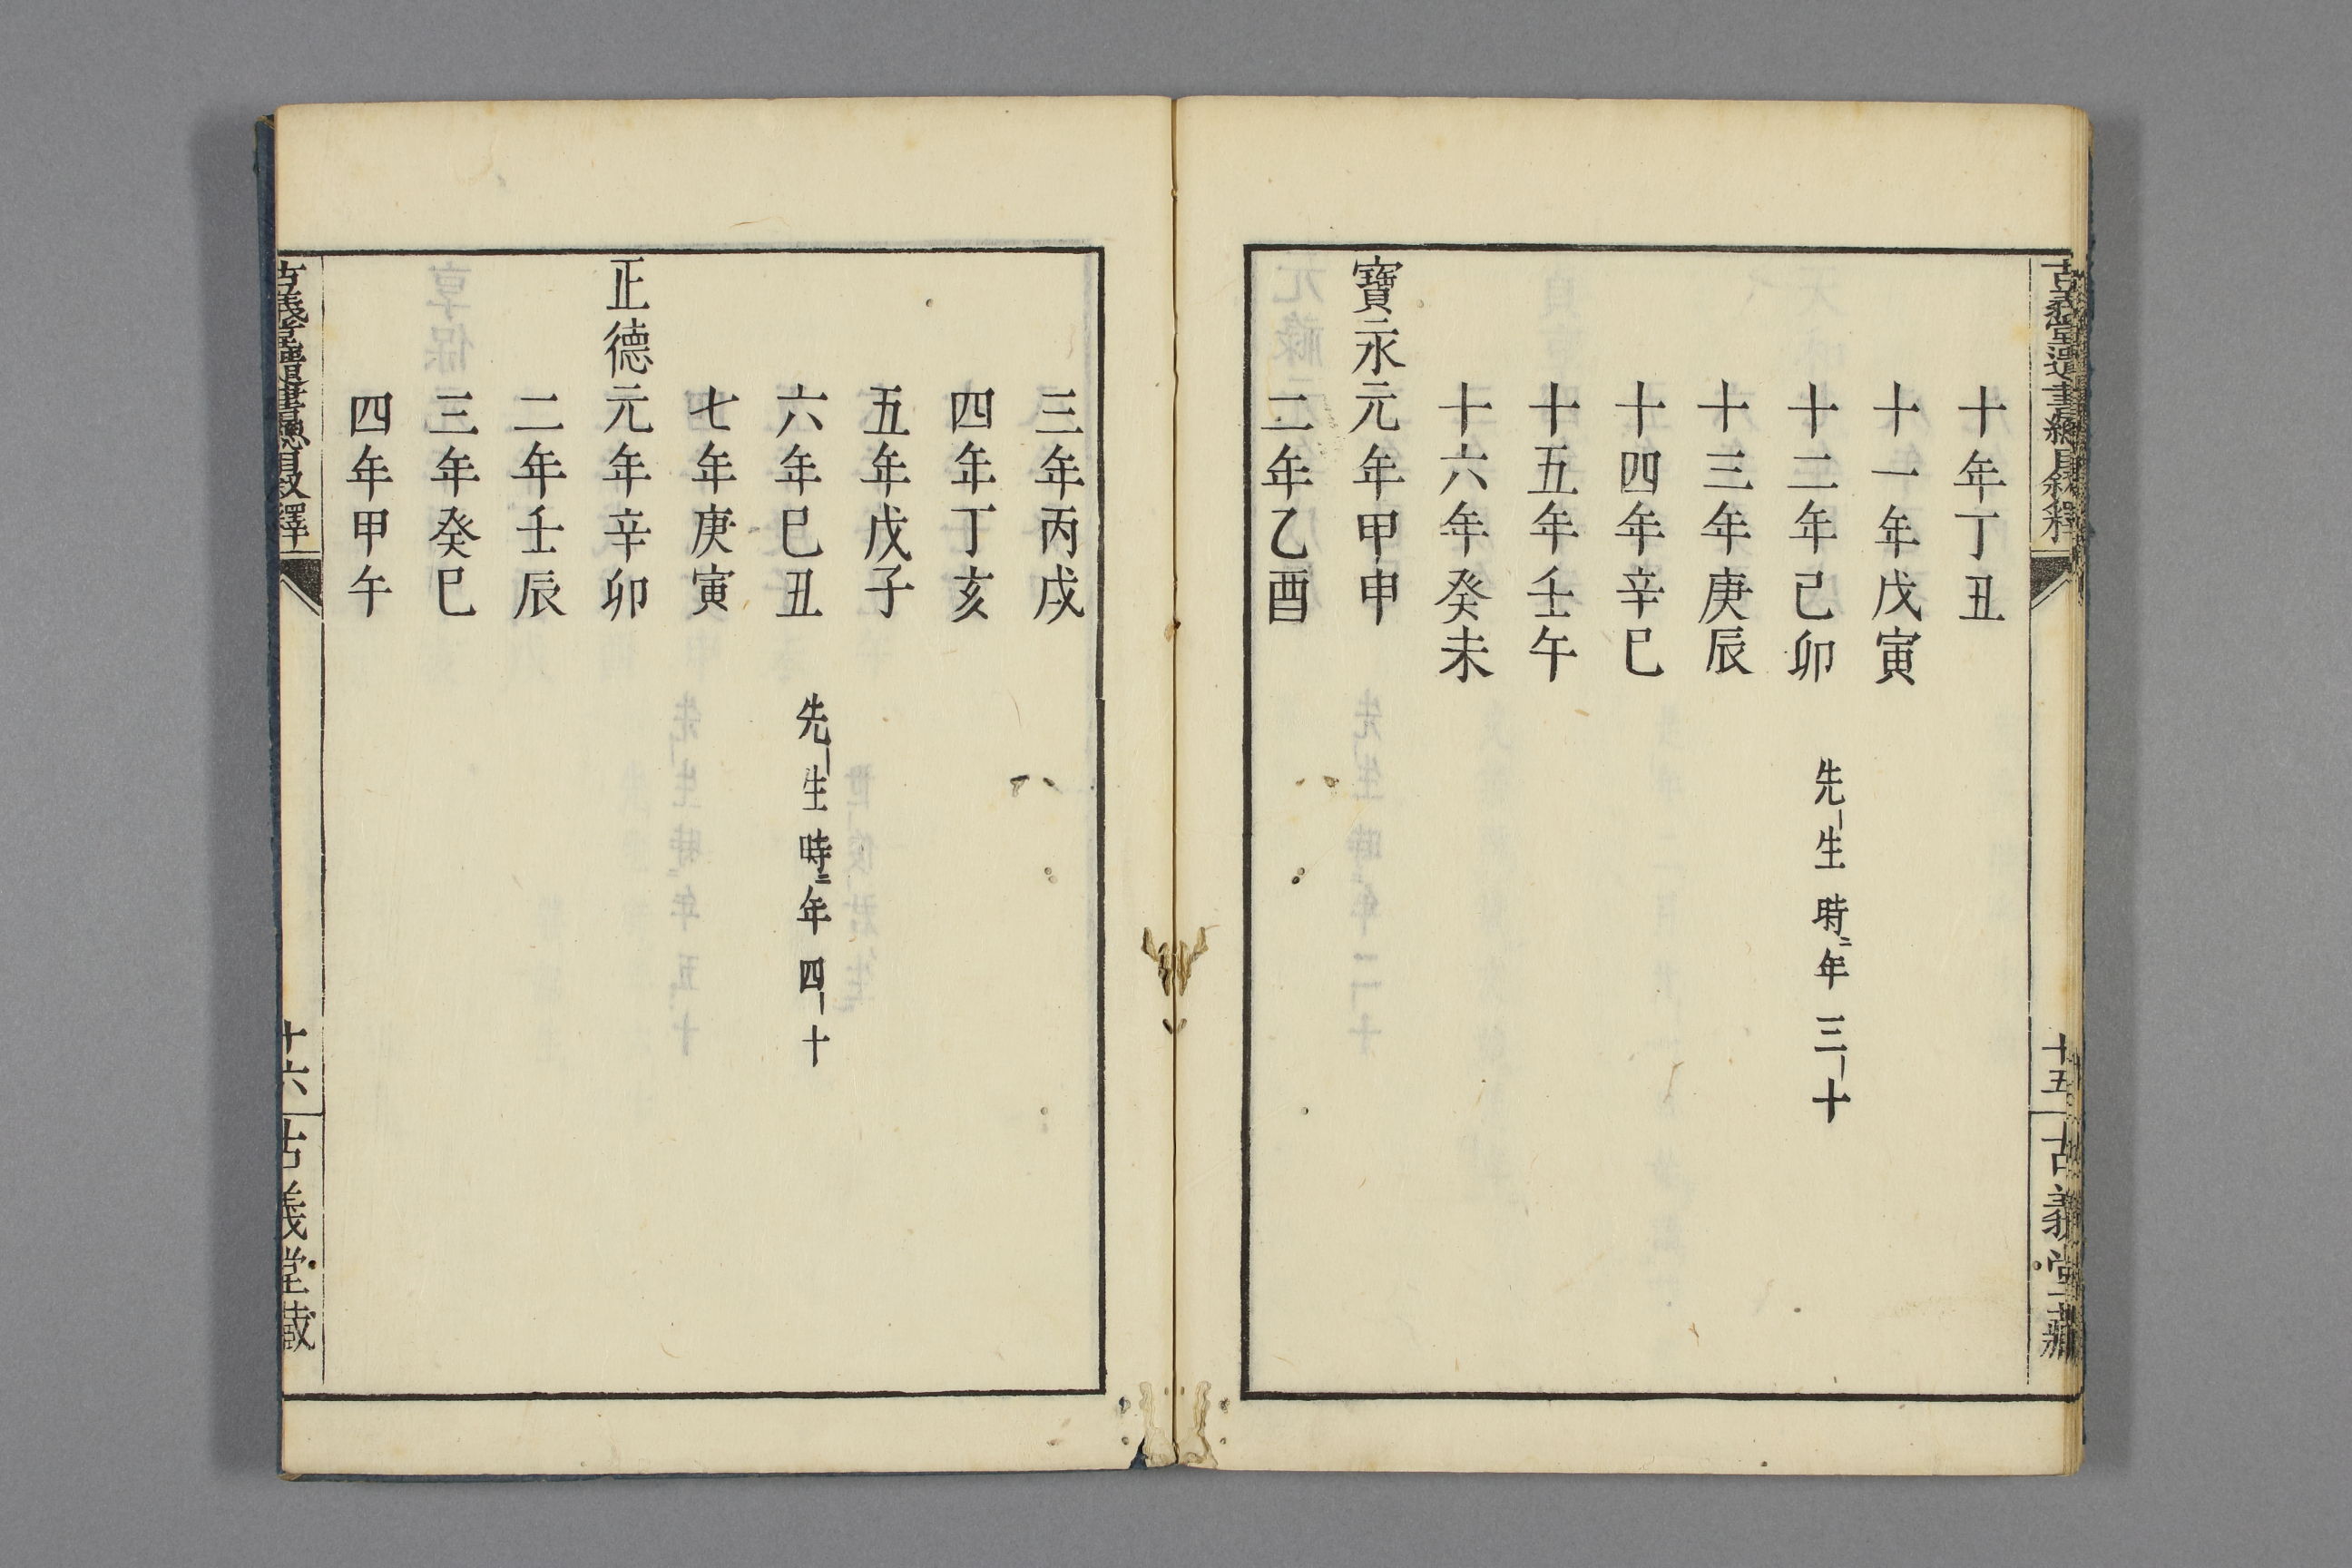 古義堂遺書總目叙釋
十五
古義堂藏
十年丁丑
十一年戊寅
十二年己卯 先生時ニ年三十
十三年庚辰
十四年辛巳
十五年壬午
十六年癸未
寶永元年甲申
二年乙酉
三年丙戌
四年丁亥
五年戊子
六年巳丑 先生時ニ年四十
七年庚寅
正德元年辛卯
二年壬辰
三年癸巳
四年甲午
古義堂遺書總目叙釋
十六
古義堂藏